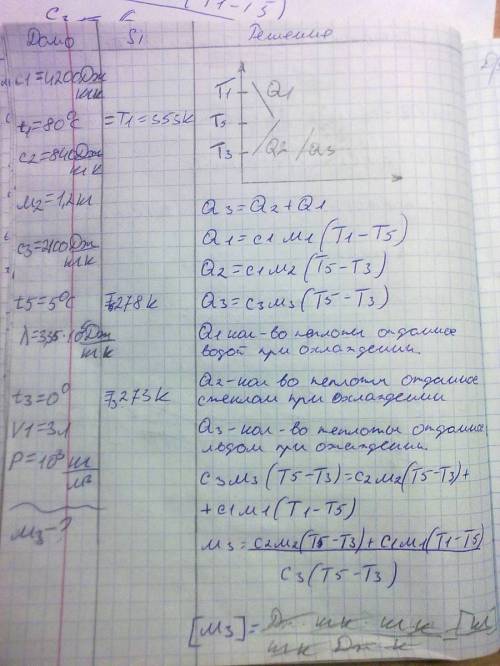 Дано SI Решение
c1=4200 Дж/кгК
t1=80°C =T1=353К
c2=840 Дж/кгК
м2=1,2кг
c3=2100 Дж/кгК
t5=5°C T5 278К
t3=0° T3 273К
V1=3л
P=10³ кг/м³
м3-?
T1 Q1
T5
T3 Q2 Q3
Q3=Q2+Q1
Q1=c1м1(T1-T5)
Q2=c1м2(T5-T3)
Q3=c3м3(T5-T3)
Q1 кол-во теплоты отданное
водой при охлаждении.
Q2-кол во теплоты отданное
стеклом при охлаждении
Q3-кол-во теплоты отданное
льдом при охлаждении.
c3м3(T5-T3)=c2м2(T5-T3)+
+c1м1(T1-T5)
м3=c2м2(T5-T3)+c1м1(T1-T5)
c3(T5-T3)
[м3]=